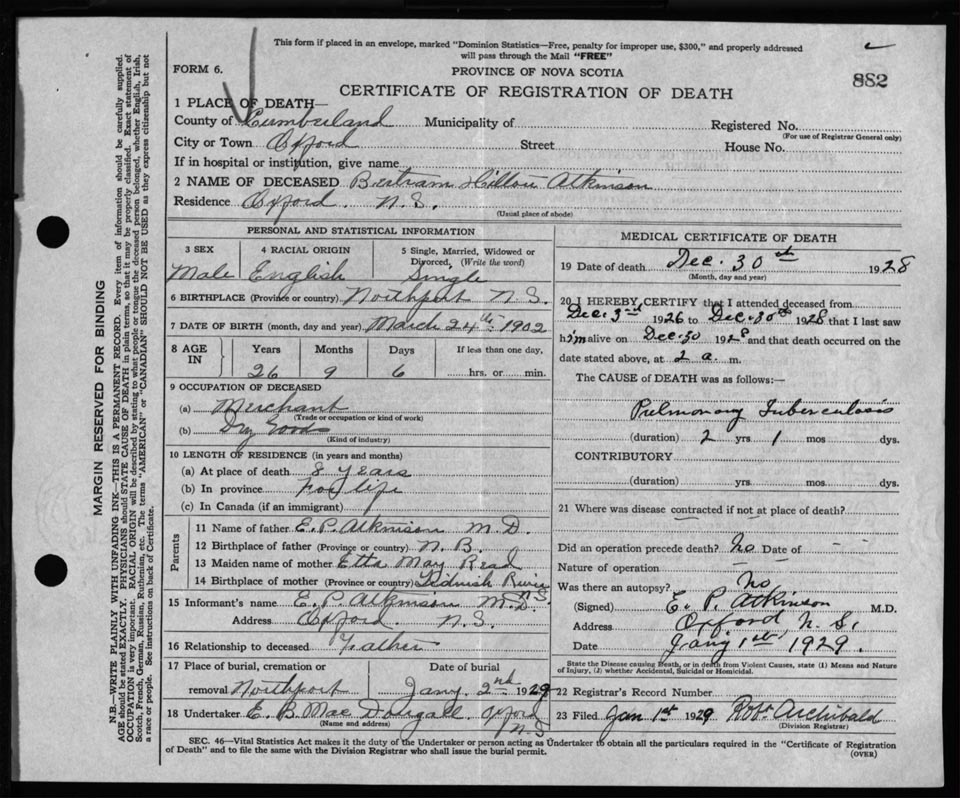 This form if placed in an envelope, marked "Dominion Statistics—Free, penalty for improper use, $300," and properly addressed
will pass through the Mail "FREE"
FORM 6.
PROVINCE OF NOVA SCOTIA
882
CERTIFICATE OF REGISTRATION OF DEATH
1 PLACE OF DEATH—
County of Cumberland Municipality of Registered No.
(For use of Registrar General only)
City or Town Oxford Street House No.
If in hospital or institution, give name
2 NAME OF DECEASED Bertram Hilton Atkinson
Residence Oxford. N.S.
(Usual place of abode)
PERSONAL AND STATISTICAL INFORMATION
3 SEX 4 RACIAL ORIGIN 5 Single, Married, Widowed or
Divorced, (Write the word)
Male English Single
6 BIRTHPLACE (Province or country) Northport N.S.
7 DATE OF BIRTH (month, day and year) March 24th 1902
8 AGE IN Years Months Days If less than one day,
26 9 6 hrs. or min.
9 OCCUPATION OF DECEASED
(a) Merchant
(Trade or occupation or kind of work)
(b) Dry Goods
(Kind of industry)
10 LENGTH OF RESIDENCE (in years and months)
(a) At place of death 8 years
(b) In province For life
(c) In Canada (if an immigrant)
Parents
11 Name of father E. P. Atkinson M.D.
12 Birthplace of father (Province or country) N.B.
13 Maiden name of mother Etta May Read
14 Birthplace of mother (Province or country) River N.S.
15 Informant's name E. P. Atkinson M.D.
Address Oxford. N.S.
16 Relationship to deceased Father
17 Place of burial, cremation or Date of burial
removal Northport Jany. 2nd 1929
18 Undertaker E. B. MacDougall. Oxford N.S
(Name and address)
MEDICAL CERTIFICATE OF DEATH
19 Date of death Dec. 30th 1928
(Month, day and year)
20 I HEREBY CERTIFY that I attended deceased from
Dec. 3rd 1926 to Dec. 30th 1928 that I last saw
him alive on Dec. 30 1928 and that death occurred on the
date stated above, at 2 a. m.
The CAUSE of DEATH was as follows:—
Pulmonary Tuberculosis
(duration) 2 yrs. 1 mos dys.
CONTRIBUTORY
(duration) yrs. mos. dys.
21 Where was disease contracted if not at place of death?
Did an operation precede death? No Date of
Nature of operation
Was there an autopsy? No
(Signed) E. P. Atkinson M.D.
Address Oxford, N.S.
Date Jany 1st 1929.
State the Disease causing Death, or in death from Violent Causes, state (1) Means and Nature
of Injury, (2) whether Accidental, Suicidal or Homicidal.
22 Registrar's Record Number
23 Filed Jan 1st 1929 Robt Archibald
(Division Registrar)
SEC. 46—Vital Statistics Act makes it the duty of the Undertaker or person acting as Undertaker to obtain all the particulars required in the "Certificate of Registration
of Death" and to file the same with the Division Registrar who shall issue the burial permit.
(OVER)
MARGIN RESERVED FOR BINDING
N.B.—WRITE PLAINLY WITH UNFADING INK—THIS IS A PERMANENT RECORD. Every item of information should be carefully supplied.
AGE should be stated EXACTLY. PHYSICIANS should STATE CAUSE OF DEATH in plain terms, so that it may be properly classified. Exact statement of
OCCUPATION is very important. RACIAL ORIGIN will be described by stating to what people or tongue the deceased person belonged, whether English, Irish,
Scotch, French, German, Russian, Ruthenian, etc. The terms "AMERICAN" or "CANADIAN" SHOULD NOT BE USED as they express citizenship but not
a race or people. See instructions on back of Certificate.